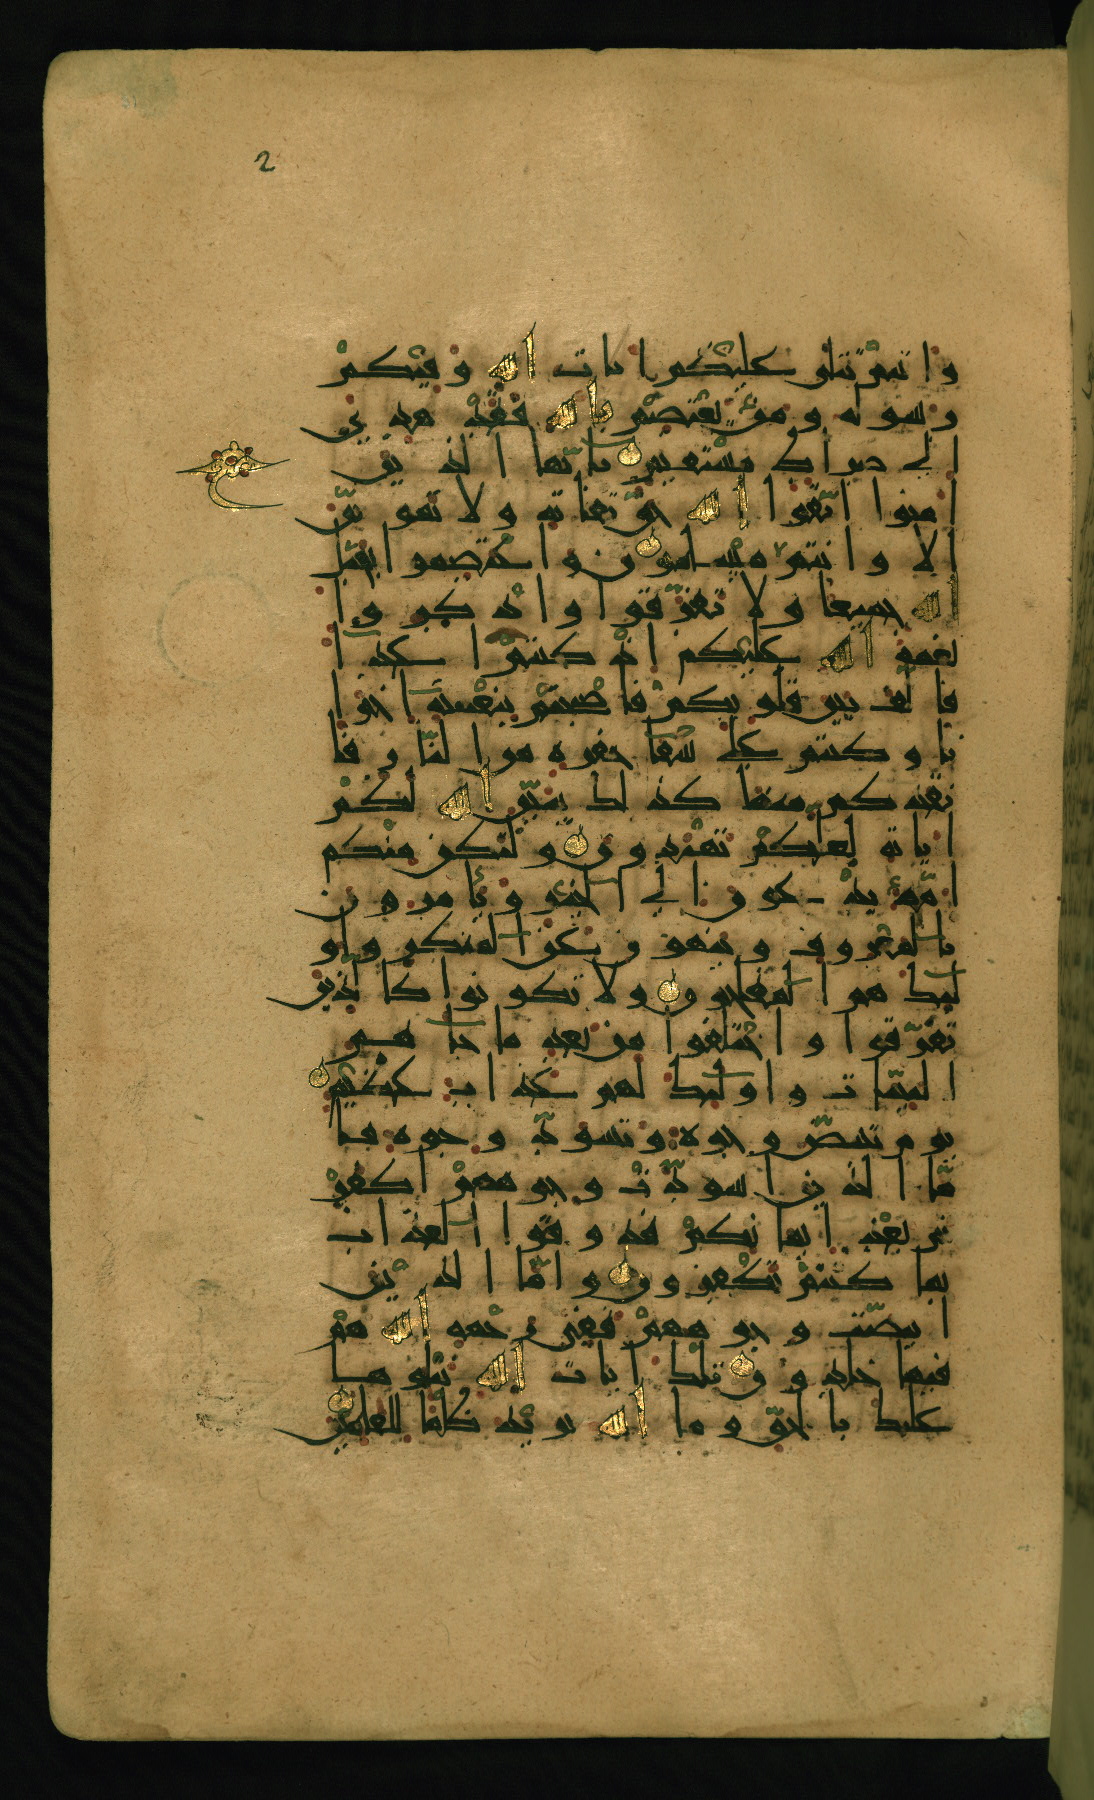 2
وا نتم تتلى عليكم ا يا ت الله و فيكم
ر سو له و من يعتصم با لله فقد هد ي
ا لى صر اط مستقيم يا يها ا لذ ين
ا منوا ا تقوا ا لله حق تقا ته و لا تمو تن
ا لا و ا نتم مسلمو ن و ا عتصموا بحبل
ا لله جميعا و لا تفر قوا و ا ذ كر و ا
نعمة ا لله عليكم ا ذ كنتم ا عد ا
فا لف بين قلو بكم فا صبحتم بنعمته ا خوا
نا و كنتم على شفا حفر ة من ا لنا ر فا
نقذ كم منها كذ لك يبين ا لله لكم
ا يا ته لعلكم تهتد و ن و لتكن منكم
ا مة يد عو ن ا لى ا لخير و يا مر و ن
با لمعر و ف و ينهو ن عن ا لمنكر و ا و
لئك هم ا لمفلحو ن و لا تكو نوا كا لذين
تفر قوا و ا ختلفوا من بعد ما جا هم
ا لبينا ت و ا و لئك لهم عذ ا ب عظيم
يو م تبيض و جو ه و تسو د و جو ه فا
ما ا لذ ين ا سو د ت و جو ههم ا كفر
تم بعد ا يما نكم فذ و قوا ا لعذ ا ب
بما كنتم تكفر و ن و ا ما ا لذ ين
ا بيضت و جو ههم ففي ر حمة ا لله هم
فيها خلد و ن تلك ا يا ت ا لله نتلو ها
عليك با لحق و ما ا لله ير يد ظلما للعلمين